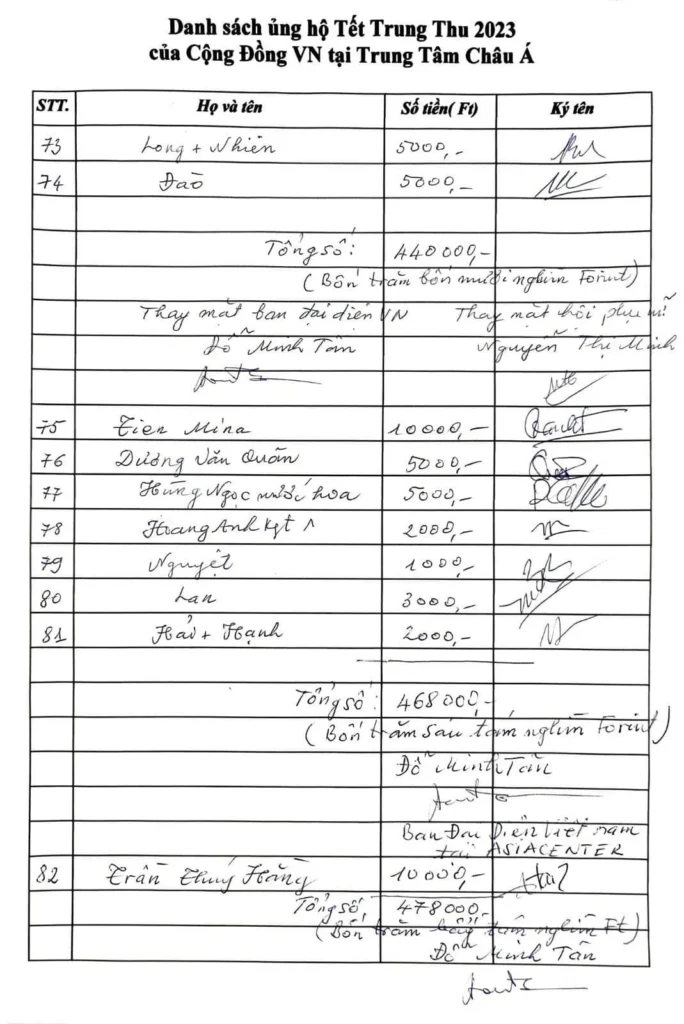 Danh sách ủng hộ Tết Trung Thu 2023
của Cộng Đồng VN tại Trung Tâm Châu Á
STT. Họ và tên Số tiền( Ft) Ký tên
73 Long + Nhiên 5000,-
74 Đào 5000,-
Tổng số: 440000,-
(Bốn trăm bốn mươi nghìn Forint)
Thay mặt ban đại diện VN Thay mặt hội phụ nữ
Đỗ Minh Tân Nguyễn Thị Minh
75 Tien Mina 10000,-
76 Dương Văn Quân 5000,-
77 Hùng Ngọc nước hoa 5000,-
78 Hoang Anh kgt 2000,-
79 Nguyệt 1000,-
80 Lan 3000,-
81 Hải + Hạnh 2000,-
Tổng số: 468000,-
(Bốn trăm sáu tám nghìn Forint)
Đỗ Minh Tân
Ban Đại Diện Việt nam
tại ASIACENTER
82 Trần Thúy Hằng 10000,-
Tổng số 478000,-
(Bốn trăm bảy tám nghìn Ft)
Đỗ Minh Tân